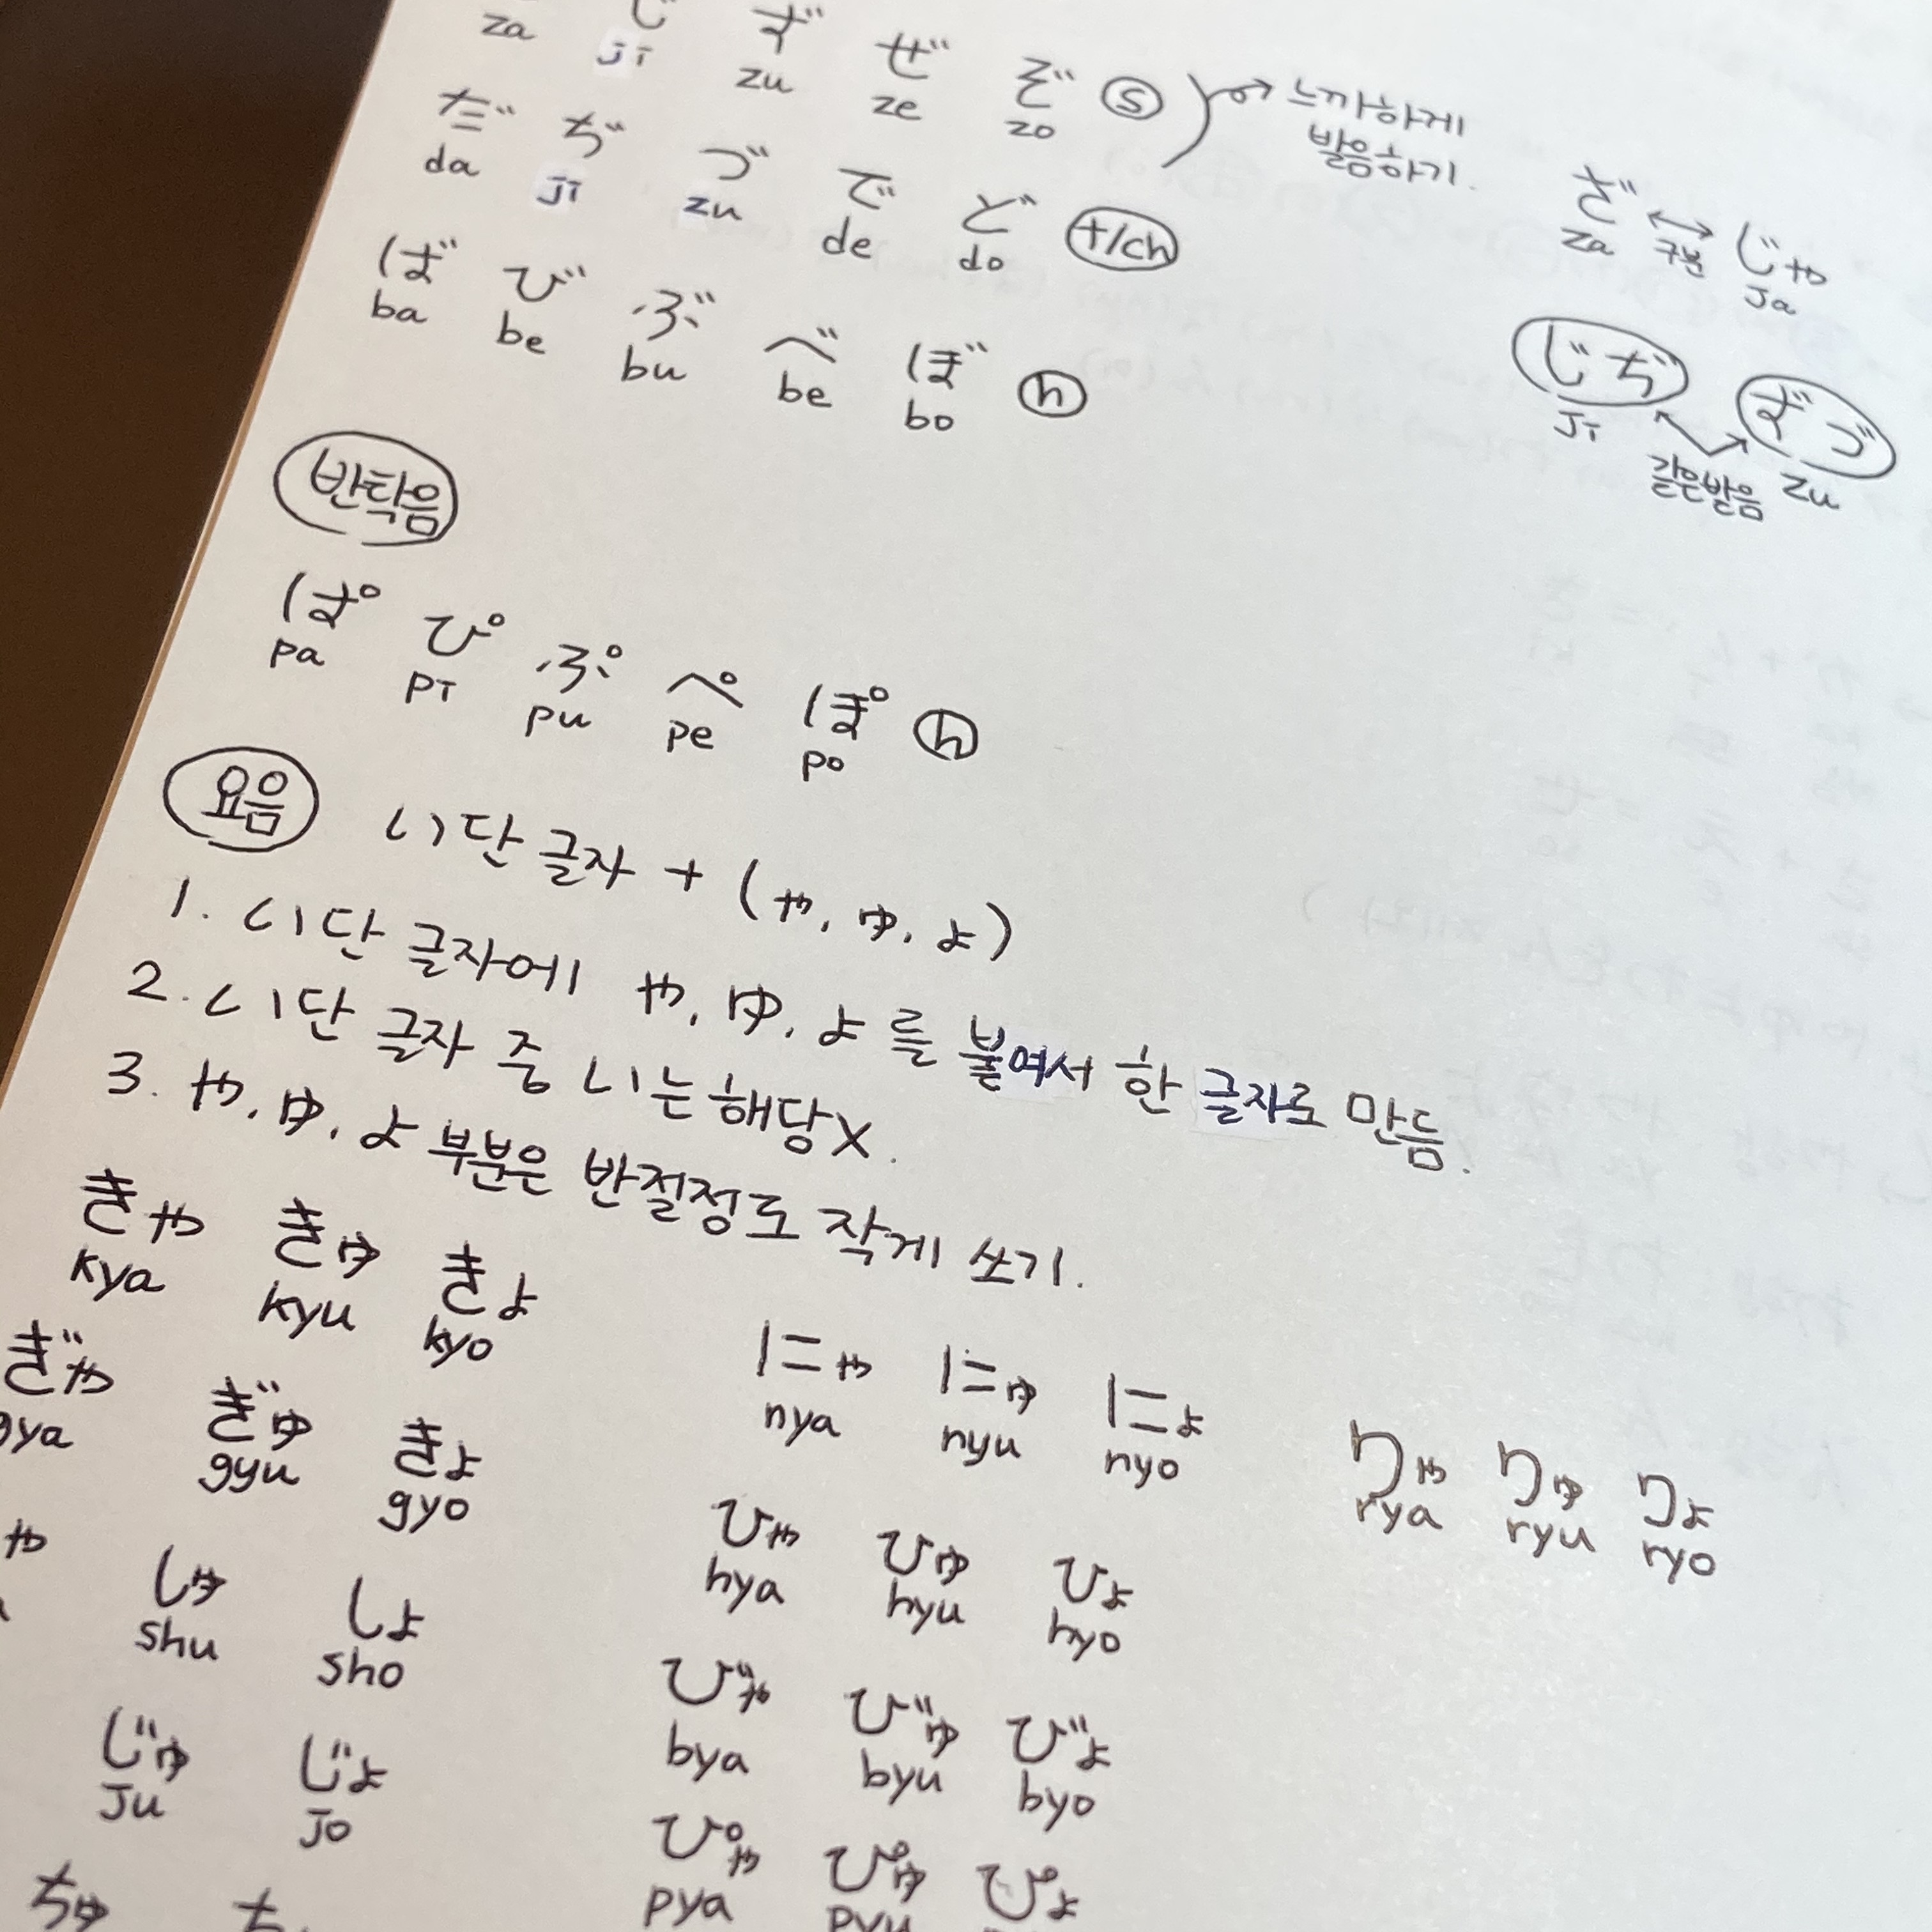 じ ず ぜ ぞ ⓢ
za ji zu ze zo
느끼하게
발음하기.
だ ぢ づ で ど t/ch
da ji zu de do
ば び ぶ べ ぼ ⓗ
ba be bu be bo
ざ ↔ じゃ
za 구분 Ja
じ ぢ ず づ
Ji 같은발음 zu
반탁음
ぱ ぴ ぷ ぺ ぽ ⓗ
pa pi pu pe po
요음 い단 글자 + (ゃ, ゅ, ょ)
1. い단 글자에 ゃ, ゅ, ょ를 붙여서 한 글자로 만듬.
2. い단 글자 중 い는 해당X.
3. ゃ, ゅ, ょ 부분은 반절정도 작게 쓰기.
きゃ きゅ きょ
kya kyu kyo
ぎゃ ぎゅ きょ
gya gyu gyo
ゃ しゅ しょ
shu sho
じゅ じょ
Ju Jo
ちゅ ち
にゃ にゅ にょ
nya nyu nyo
ひゃ ひゅ ひょ
hya hyu hyo
びゃ びゅ びょ
bya byu byo
ぴゃ ぴゅ ぴょ
pya pyu
りゃ りゅ りょ
rya ryu ryo